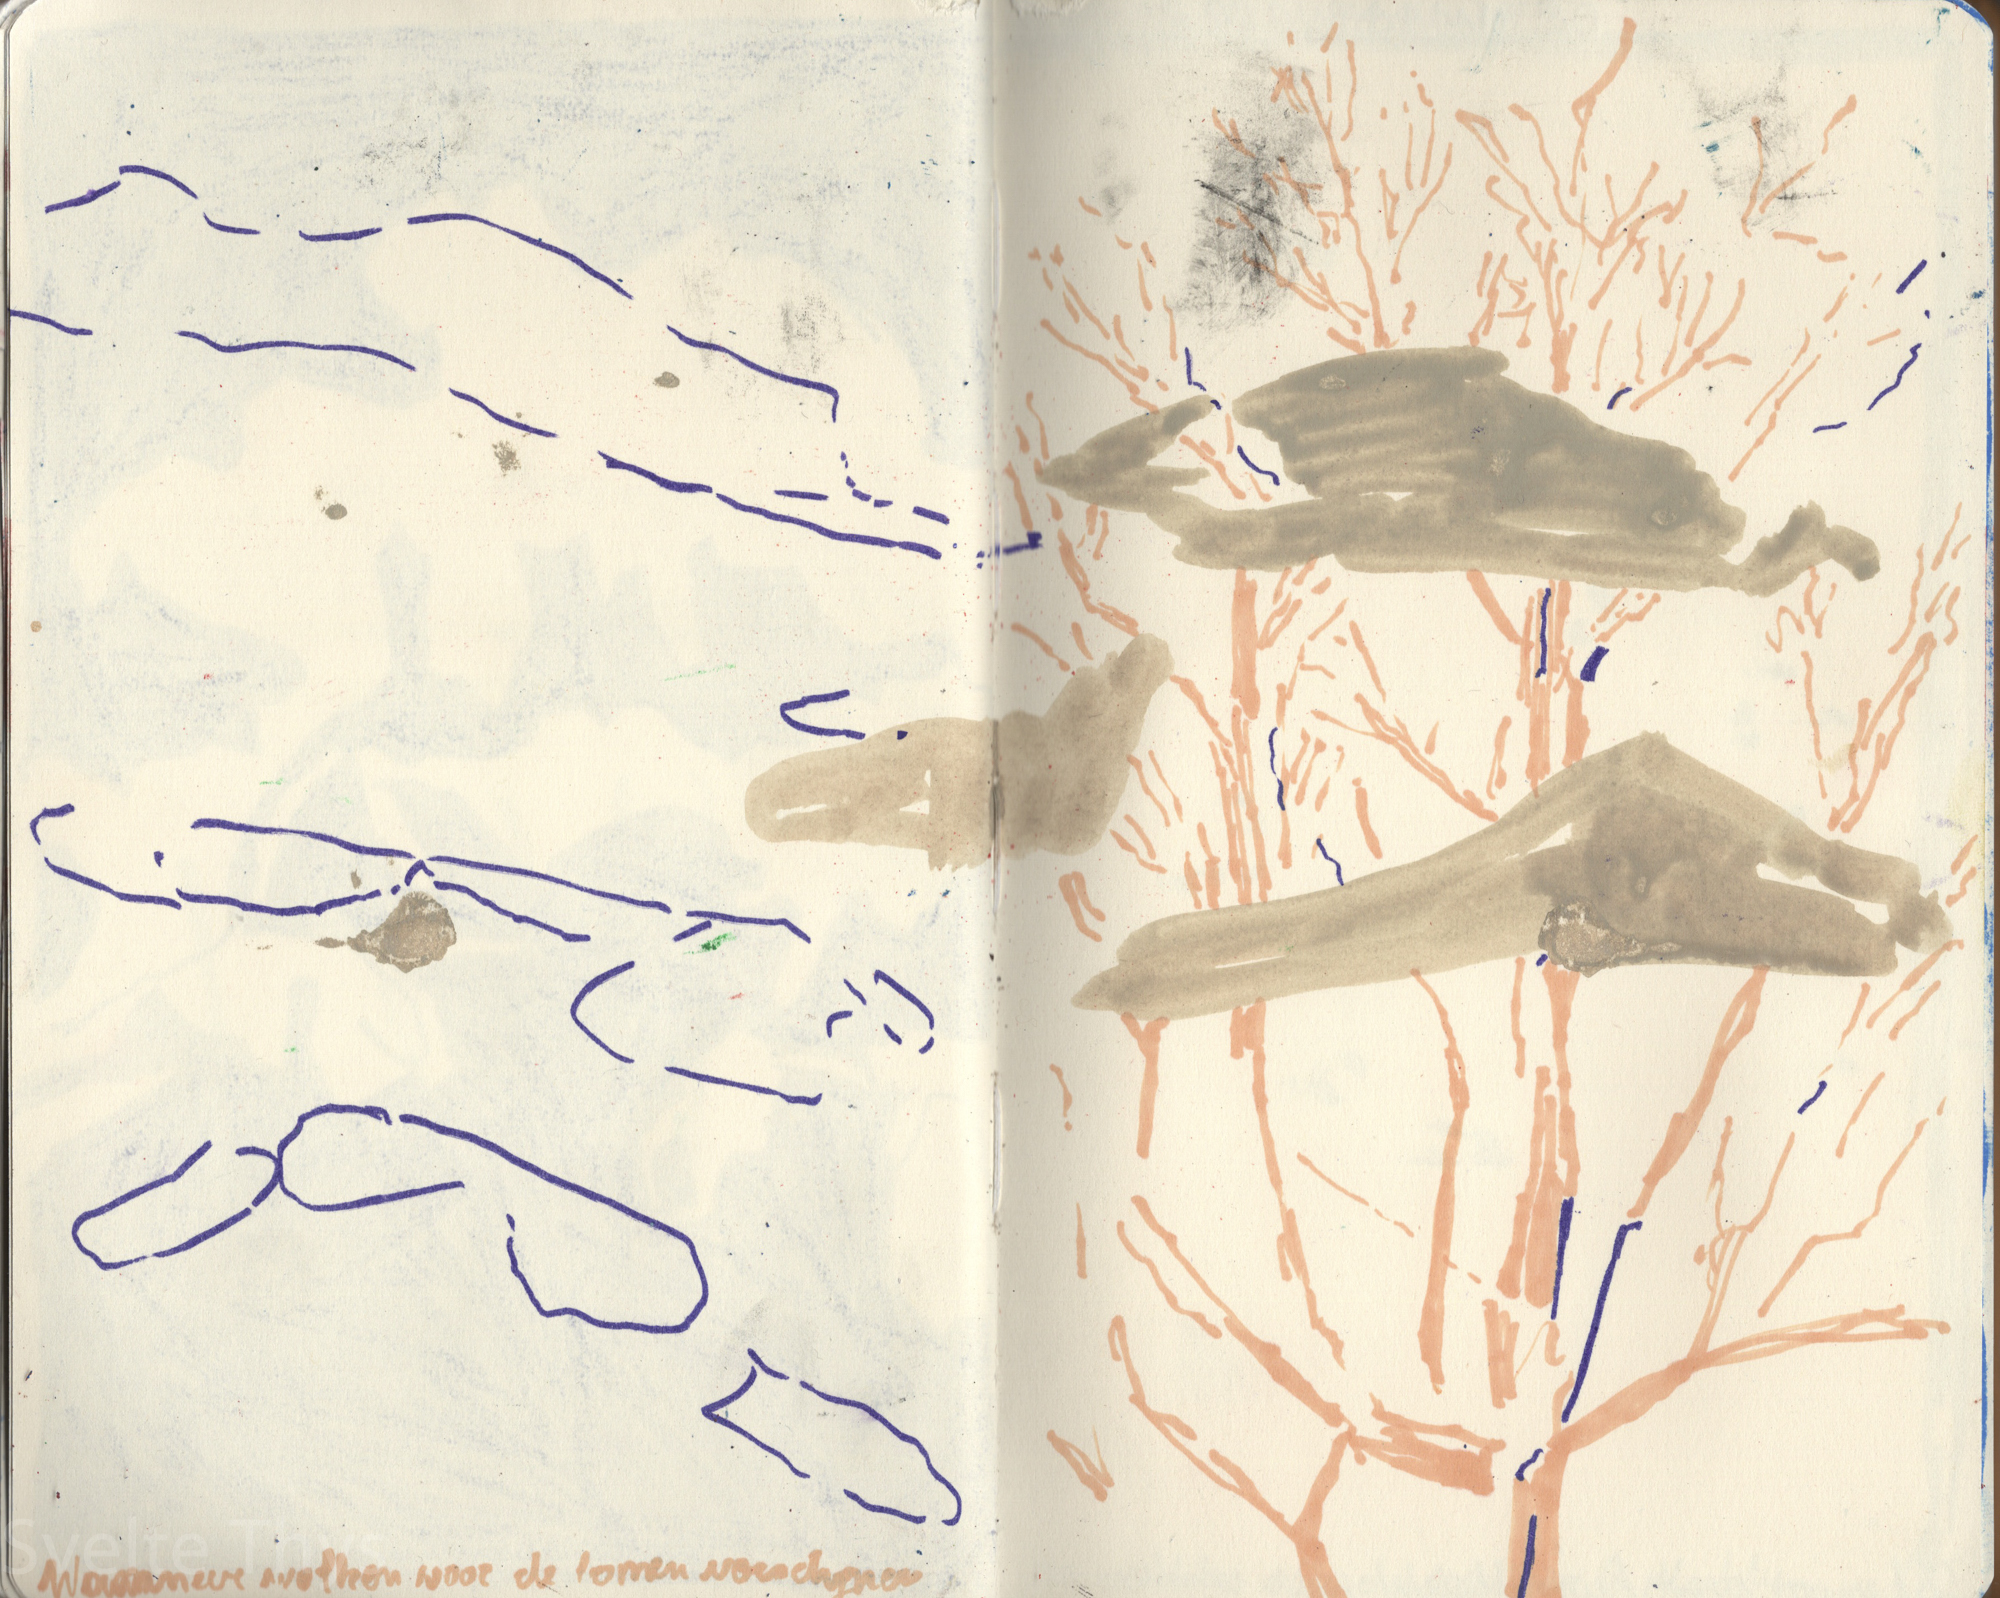 Svelte Thys
Wanneer wolken voor de bomen verschijnen